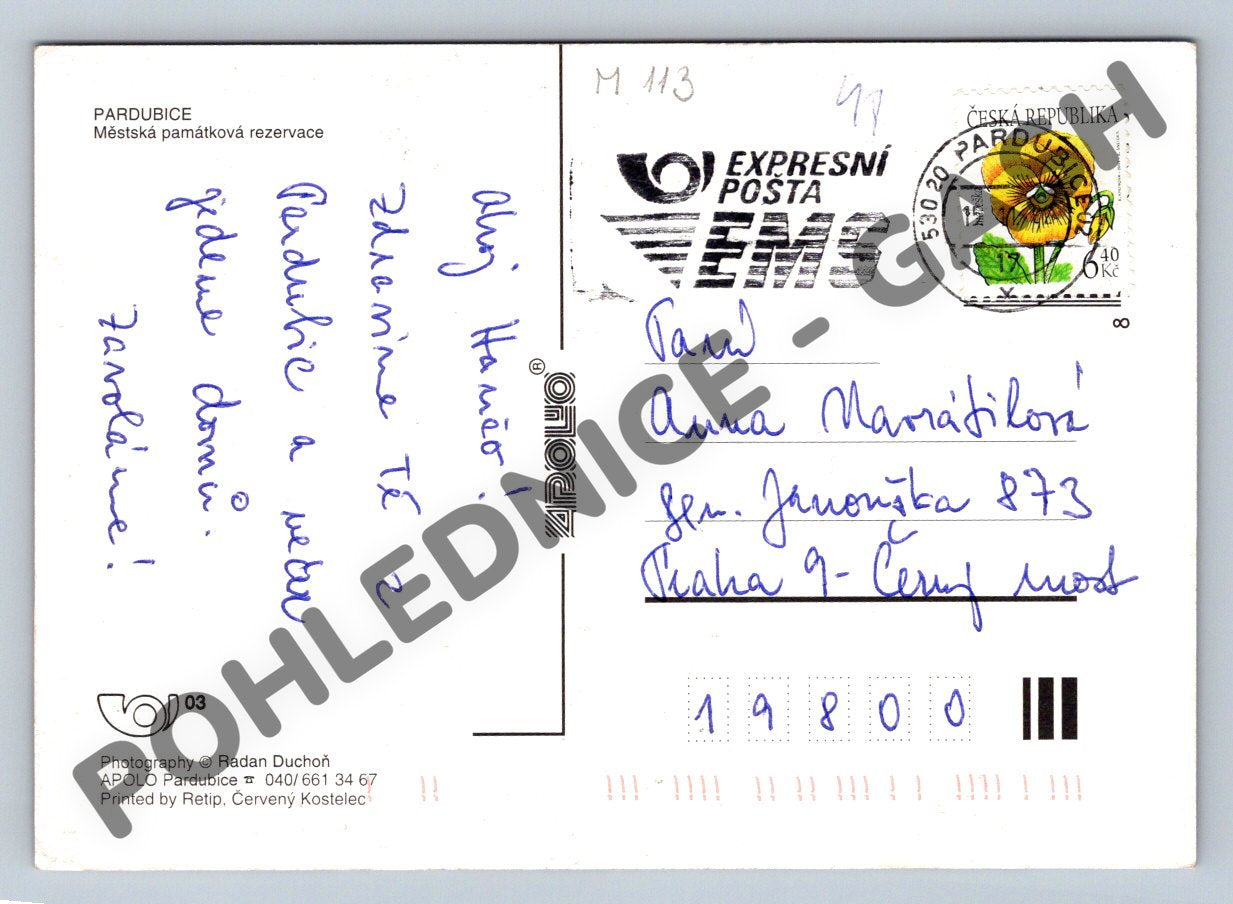 PARDUBICE
Městská památková rezervace
Ahoj Haničo!
Zdravíme Tě z
Pardubic a večer
jedeme domů.
Zavoláme!
03
Photography © Radan Duchoň
APOLO Pardubice ☎ 040/ 661 34 67
Printed by Retip, Červený Kostelec
APOLO ®
M 113
EXPRESNÍ
POŠTA
EMS
530 20 PARDUBICE 02
17
ČESKÁ REPUBLIKA
6 40
Kč
8
Paní
Anna Navrátilová
gen. Janouška 873
Praha 9 - Černý most
19800
POHLEDNICE - GACH